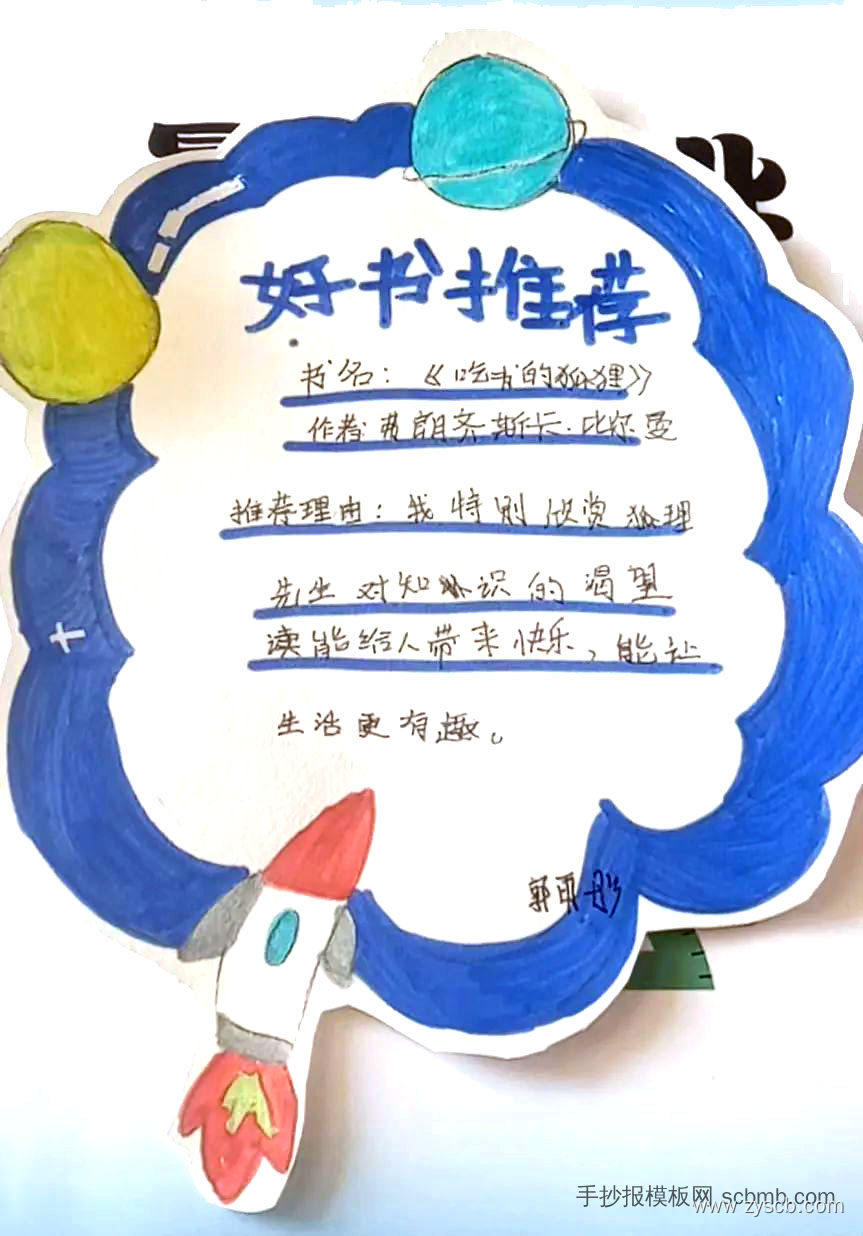 好书推荐
书名：《吃书的狐狸》
作者 弗朗齐斯卡·比尔曼
推荐理由：我特别欣赏狐理
先生对知识的渴望
读能给人带来快乐，能让
生活更有趣。
手抄报模板网 schmb.com
www.zyscb.com